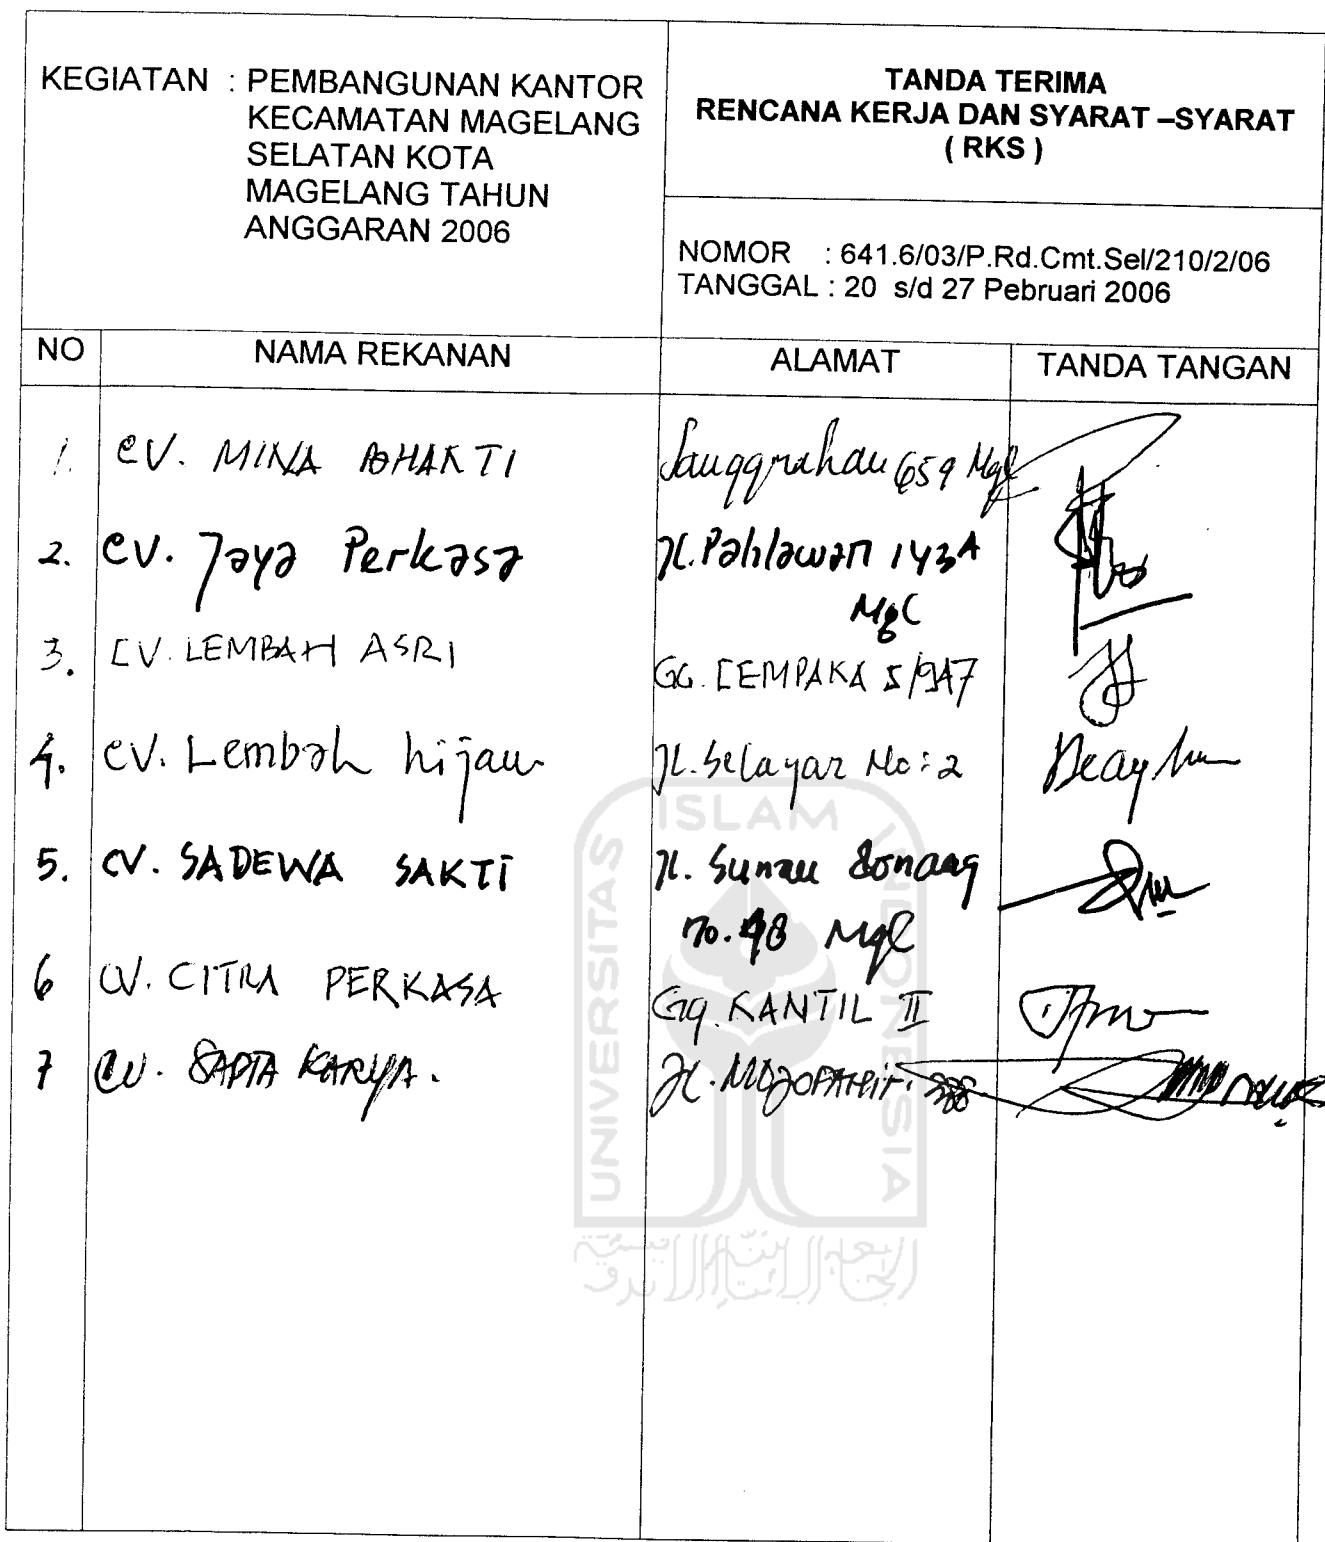 KEGIATAN : PEMBANGUNAN KANTOR
KECAMATAN MAGELANG
SELATAN KOTA
MAGELANG TAHUN
ANGGARAN 2006
TANDA TERIMA
RENCANA KERJA DAN SYARAT –SYARAT
( RKS )
NOMOR : 641.6/03/P.Rd.Cmt.Sel/210/2/06
TANGGAL : 20 s/d 27 Pebruari 2006
NO NAMA REKANAN ALAMAT TANDA TANGAN
1. CV. MINA BHAKTI Sanggrahan 659 Mgl
2. CV. Jaya Perkasa Jl. Pahlawan 143A
Mgl
3. CV. LEMBAH ASRI GG. CEMPAKA
4. CV. Lembah hijau Jl. Selayar No: 2
5. CV. SADEWA SAKTI Jl. Sunan Bonang
no. 98 Mgl
6 CV. CITRA PERKASA Gg. KANTIL II
7 CV. SAPTA KARYA. Jl. MOJOPAHIT.
UNIVERSITAS
ISLAM
INDONESIA